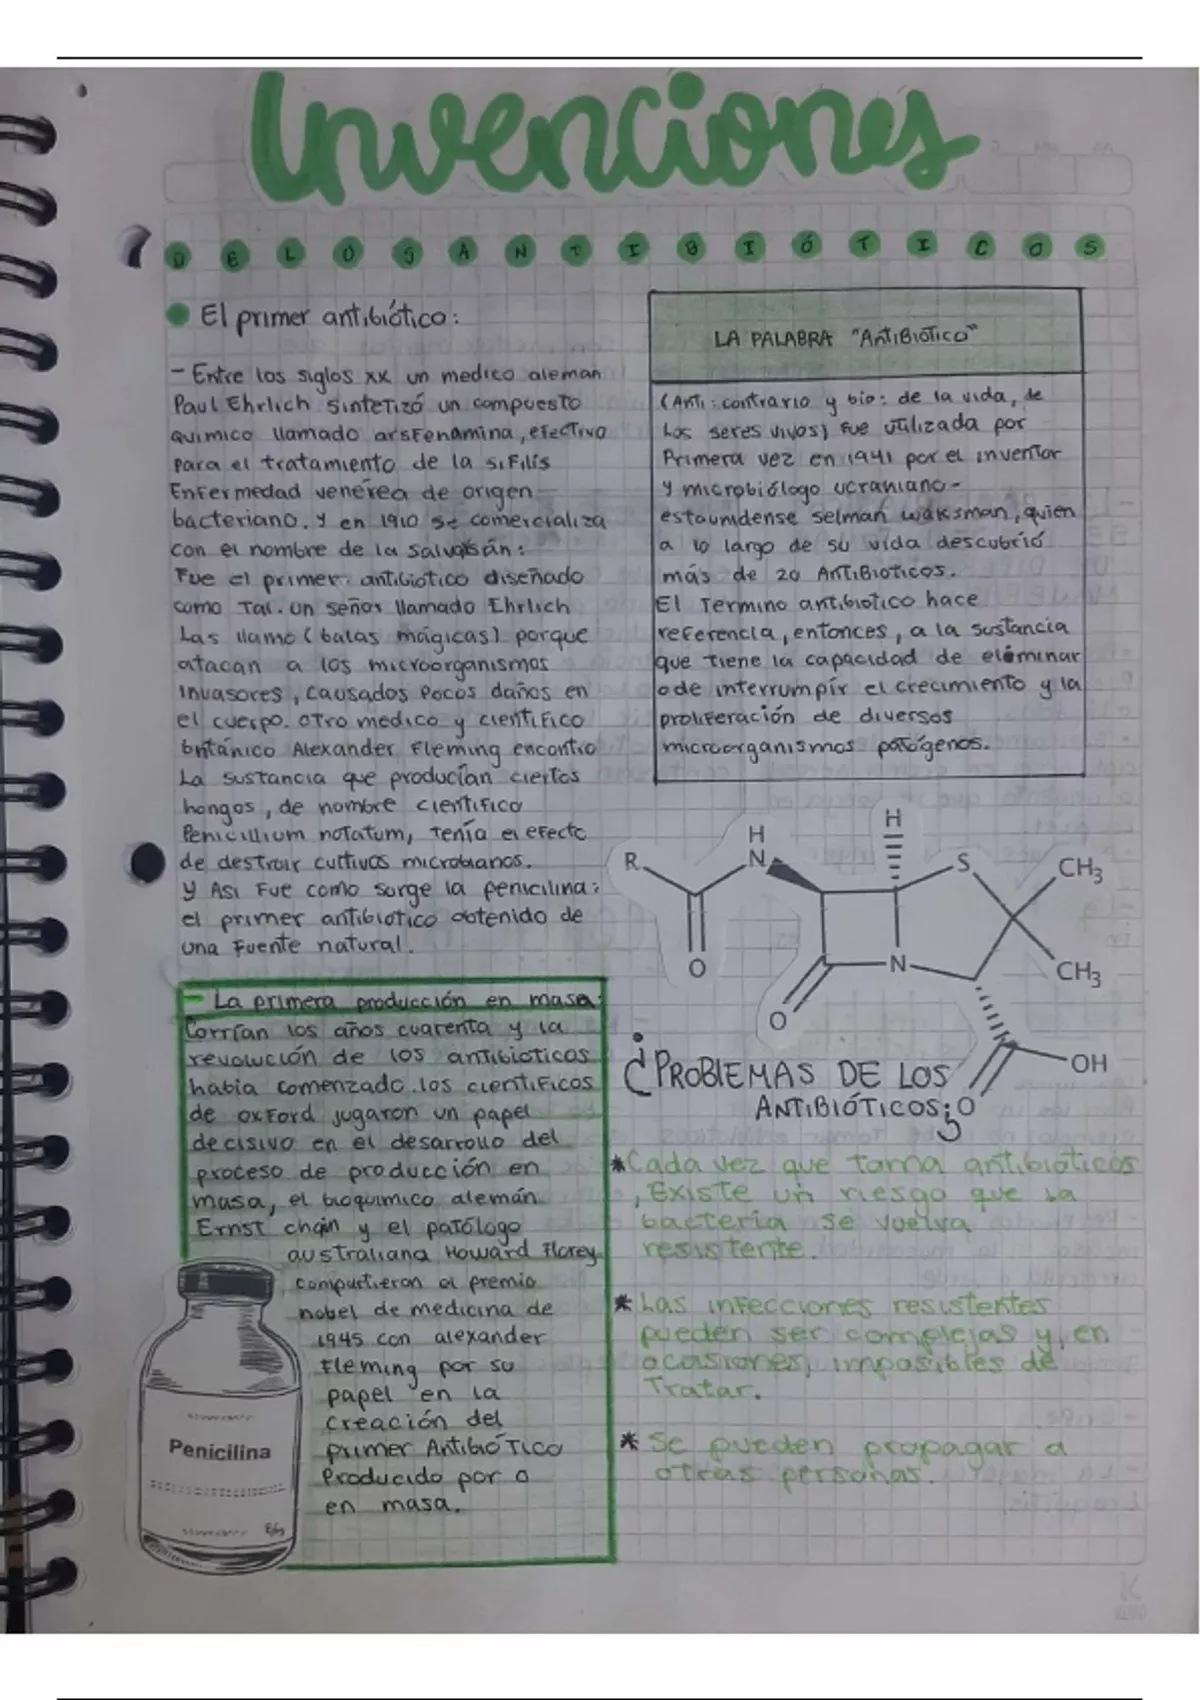 Invenciones
DE LOS ANTIBIÓTICOS
El primer antibiótico:
- Entre los siglos xx un medico aleman
Paul Ehrlich sintetizó un compuesto
quimico llamado arsfenamina, efectivo
para el tratamiento de la sifilis
Enfermedad venérea de origen
bacteriano. y en 1910 se comercializa
con el nombre de la salvarsán:
Fue el primer antibiotico diseñado
como Tal. un señor llamado Ehrlich
Las llamo (balas mágicas) porque
atacan a los microorganismos
Invasores, causados pocos daños en
el cuerpo. otro medico y cientifico
británico Alexander Fleming encontro
La sustancia que producían ciertos
hongos, de nombre cientifico
Penicillium notatum, tenía el efecto
de destruir cultivos microbianos.
y Asi Fue como surge la penicilina:
el primer antibiotico obtenido de
una Fuente natural.
LA PALABRA "AntiBiótico"
(Anti: contrario y bio: de la vida, de
Los seres vivos) fue utilizada por
Primera vez en 1941 por el inventor
y microbiólogo ucraniano-
estaunidense selman waksman, quien
a lo largo de su vida descubrió
más de 20 AntiBioticos.
El Termino antibiotico hace
referencia, entonces, a la sustancia
que tiene la capacidad de eliminar
o de interrumpir el crecimiento y la
proliferación de diversos
microorganismos patógenos.
R
H
N
H
S
CH3
CH3
N
O
O
OH
O
- La primera producción en masa:
Corrían los años cuarenta y la
revolución de los antibioticos
habia comenzado. los cientificos
de oxford jugaron un papel
decisivo en el desarrollo del
proceso de producción en
masa, el bioquimico alemán
Ernst chain y el patólogo
australiana Howard Florey
compartieron el premio
nobel de medicina de
1945 con alexander
Fleming por su
papel en la
creación del
primer AntibióTico
Producido por o
en masa.
Penicilina
¿PROBLEMAS DE LOS
ANTIBIÓTICOS?
*Cada vez que toma antibioticos
, Existe un riesgo que la
bacteria se vuelva
resistente.
*Las infecciones resistentes
pueden ser complejas y, en
ocasiones, imposibles de
Tratar.
*Se pueden propagar a
otras personas.